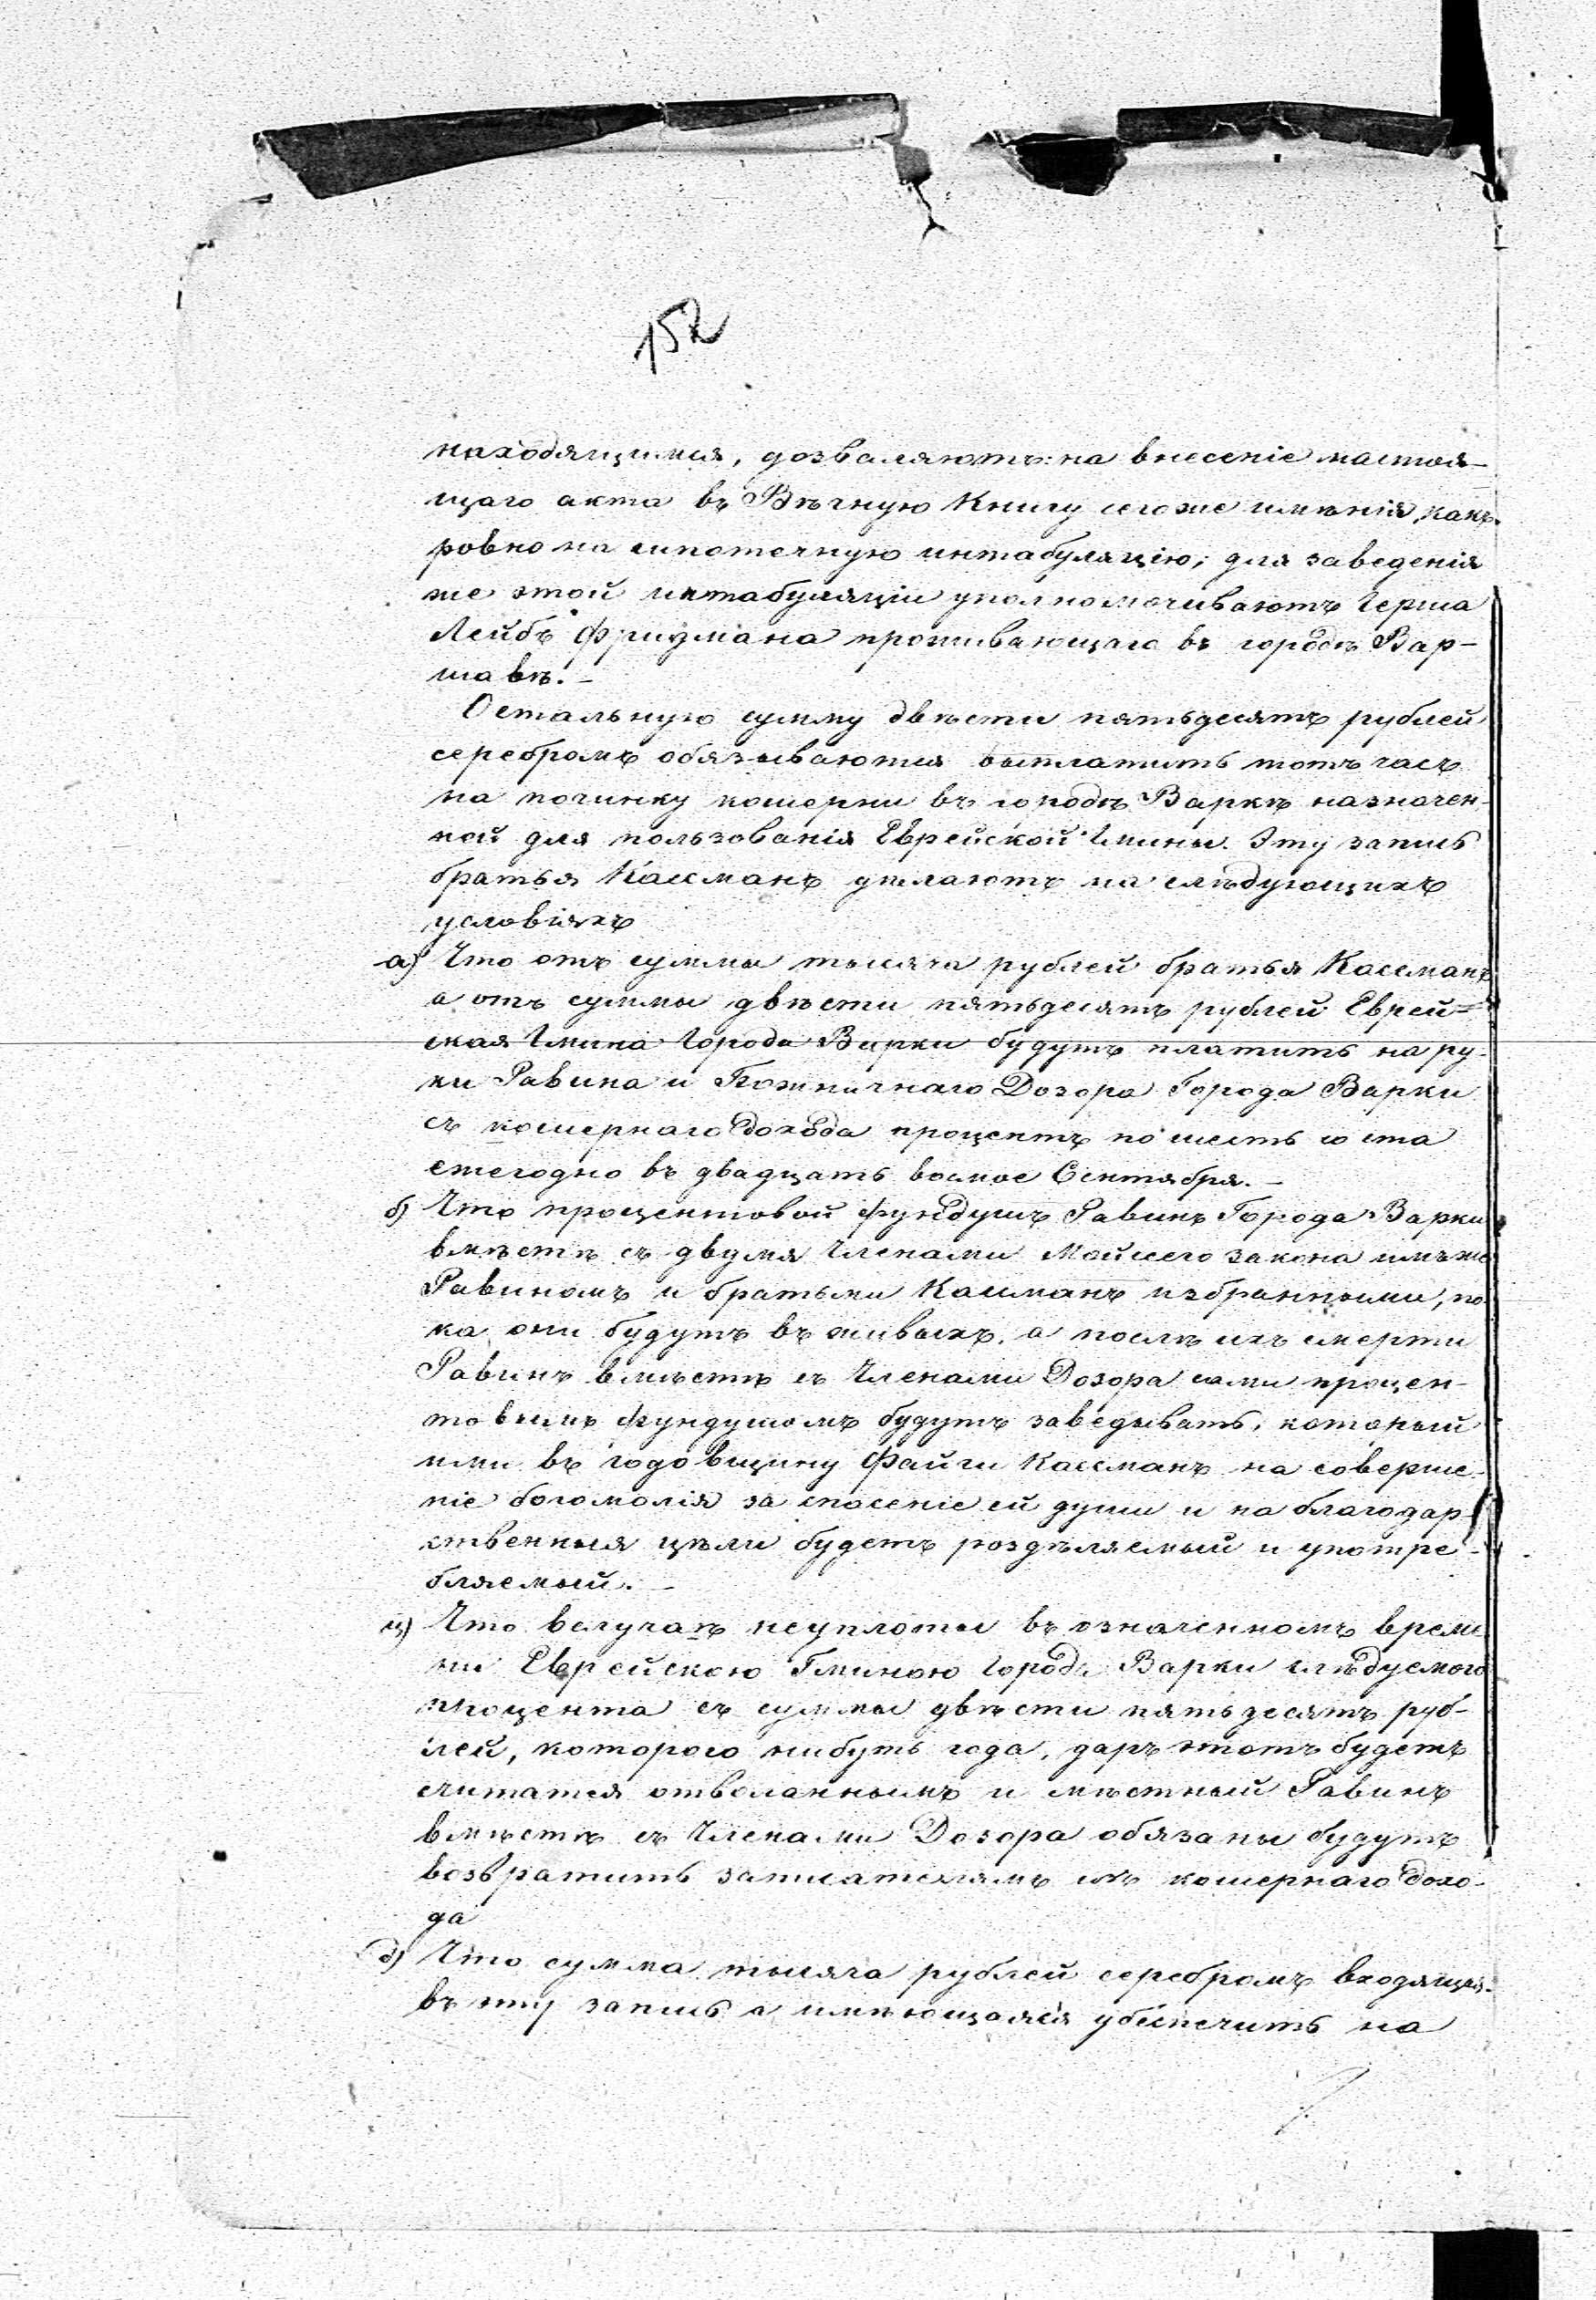 152
находящимся, дозволяютъ на внесеніе настоя-
щаго акта въ Вѣчную Книгу сегоже имѣнія, какъ
ровно на ипотечную интабуляцію; для заведенія
же этой интабуляціи уполномочиваютъ Герша
Лейбъ Фриумана проживающаго въ городѣ Вар-
шавѣ.-
Остальную сумму двѣсти пятьдесятъ рублей
серебромъ обязываются выплатить тотъ часъ
на починку кошерни въ городѣ Варкѣ назначен-
ной для пользованія Еврейской Гмины. Эту запись
братья Кассманъ дѣлаютъ на слѣдующихъ
условіяхъ
а) Что отъ суммы тысяча рублей братья Кассманъ
а отъ суммы двѣсти пятьдесятъ рублей Еврей=
ская Гмина Города Варки будутъ платить на ру-
ки Равина и Божничнаго Дозора Города Варки
съ кошернаго дохода процентъ по шесть со ста
ежегодно въ двадцать восмое Сентября.-
б) Что процентовой фундушъ Равинъ Города Варки
вмѣстѣ съ двумя Членами Мойсего закона имъже
Равиномъ и братьми Кассманъ избранными, по-
ка они будутъ въ живыхъ, а послѣ ихъ смерти
Равинъ вмѣстѣ съ Членами Дозора сами процен-
товымъ фундушомъ будутъ заведывать, который
ими въ годовщину Файги Кассманъ на соверше-
ніе богомолія за спосеніе ей души и на благодар-
ственныя цѣли будетъ роздѣляемый и употре-
бляемый.-
ц) Что вслучаѣ неуплоты въ означенномъ време-
ни Еврейскою Гминою Города Варки слѣдуемого
процента съ суммы двѣсти пятьдесятъ руб-
лей, которого нибуть года, даръ этотъ будетъ
считатся отволаннымъ и мѣстный Равинъ
вмѣстѣ съ Членами Дозора обязаны будутъ
возвратить записателямъ изъ кошернаго дохо-
да
д) Что сумма тысяча рублей серебромъ входящая
въ эту запись а имѣющаяся убеспечить на